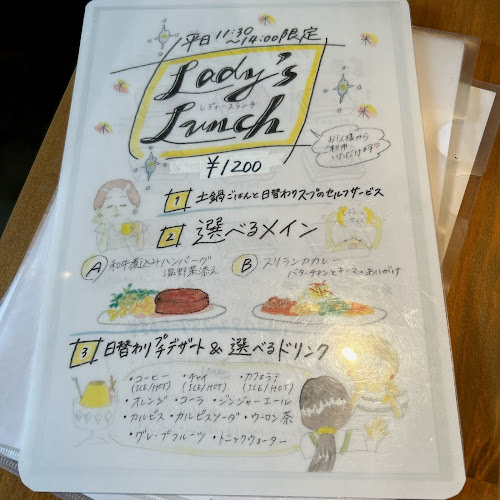 平日11:30
～14:00限定
Lady's
レディースランチ
Lunch
¥1200
お1人様から
ご利用
いただけます
1 土鍋ごはんと日替わりスープのセルフサービス
2 選べるメイン
A 和牛煮込みハンバーグ
温野菜添え
B スリランカカレー
バターチキンとキーマのあいがけ
3 日替わりプチデザート & 選べるドリンク
・コーヒー (ICE/HOT) ・チャイ (ICE/HOT) ・カフェラテ (ICE/HOT)
・オレンジ ・コーラ ・ジンジャーエール
・カルピス ・カルピスソーダ ・ウーロン茶
・グレープフルーツ ・トニックウォーター